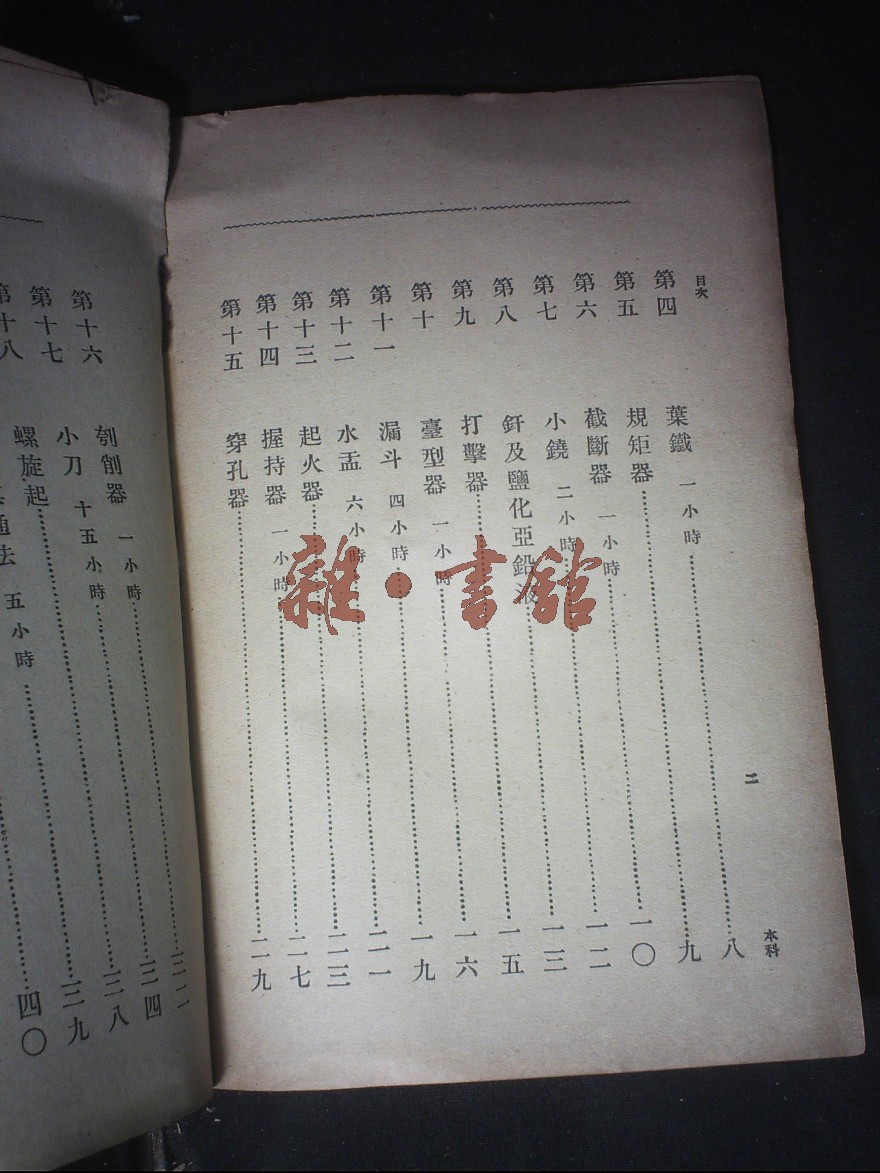 目次
二
本科
第四 葉鐵 一小時 八
第五 規矩器 九
第六 截斷器 一小時 一〇
第七 小鐃 二小時 一二
第八 釬及鹽化亞鉛液 一三
第九 打擊器 一五
第十 臺型器 一小時 一六
第十一 漏斗 四小時 一九
第十二 水盂 六小時 二一
第十三 起火器 二三
第十四 握持器 一小時 二七
第十五 穿孔器 二九
第十六 刳削器 一小時 三二
第十七 小刀 十五小時 三四
第十八 螺旋起 三八
通法 五小時 三九
四〇
雜·書館